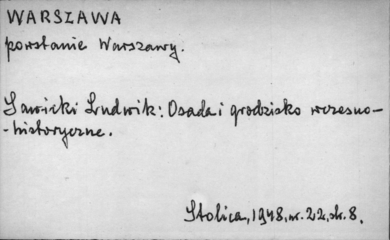 WARSZAWA
powstanie Warszawy.
Sawicki Ludwik: Osada i grodzisko wczesno-
-historyczne.
Stolica, 1948, nr. 22, str. 8.